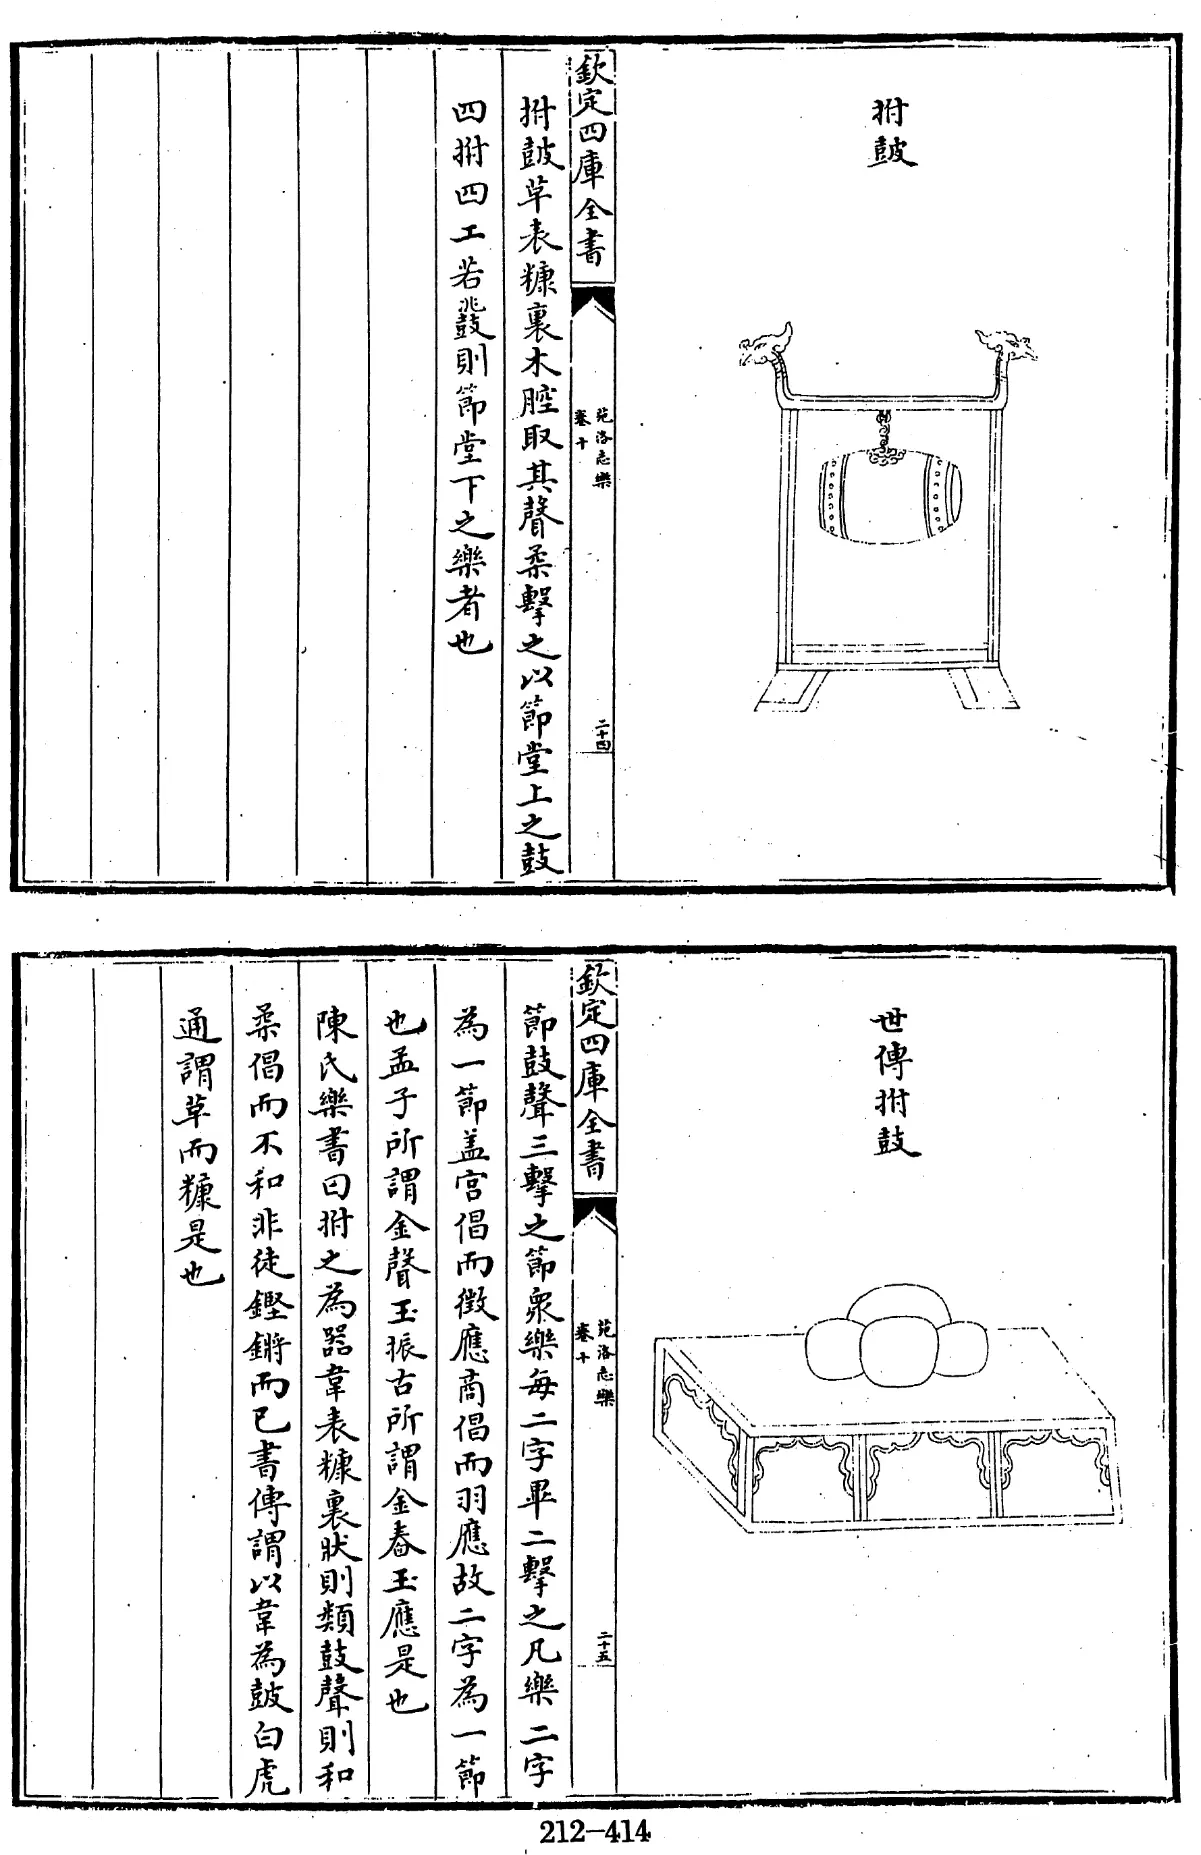 拊鼔
欽定四庫全書
苑洛志樂
卷十
二十四
拊鼔革表糠裏木腔取其聲柔擊之以節堂上之鼓
四拊四工若鼗則節堂下之樂者也
世傳拊鼓
欽定四庫全書
苑洛志樂
卷十
二十五
節鼓聲三擊之節衆樂每二字畢二擊之凡樂二字
為一節盖宮倡而徴應商倡而羽應故二字為一節
也孟子所謂金聲玉振古所謂金春玉應是也
陳氏樂書曰拊之為器韋表糠裏狀則類鼓聲則和
柔倡而不和非徒鏗鏘而已書傳謂以韋為鼔白虎
通謂革而糠是也
212-414